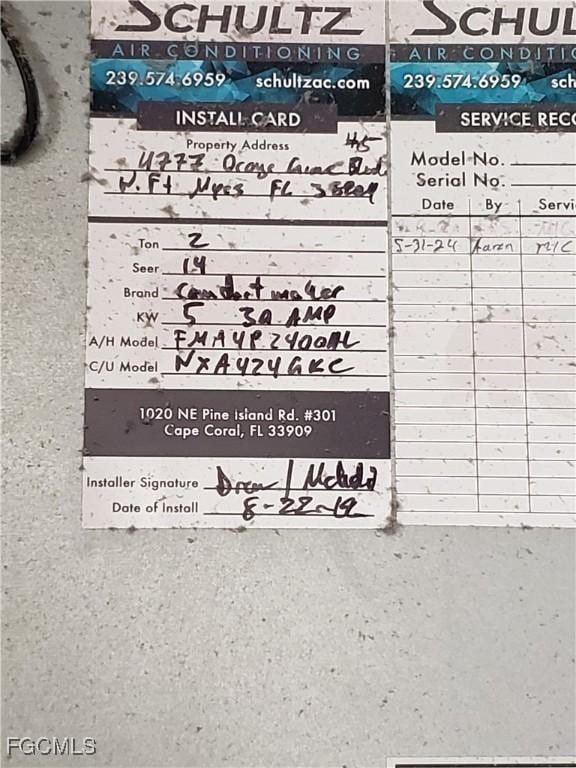 SCHULTZ
AIR CONDITIONING
239.574.6959 schultzac.com
INSTALL CARD
Property Address #5
4777 Orange Grove Blvd
N. Ft Myers FL 33909
Ton 2
Seer 14
Brand Comfort maker
KW 5 30 AMP
A/H Model FMA4P2400AL
C/U Model NXA424GKC
1020 NE Pine Island Rd. #301
Cape Coral, FL 33909
Installer Signature Drew /
Date of Install 8-22-19
SCHUL
AIR CONDITIO
239.574.6959 sch
SERVICE RECO
Model No.
Serial No.
Date By Servi
5-31-24 Aaron M/C
FGCMLS